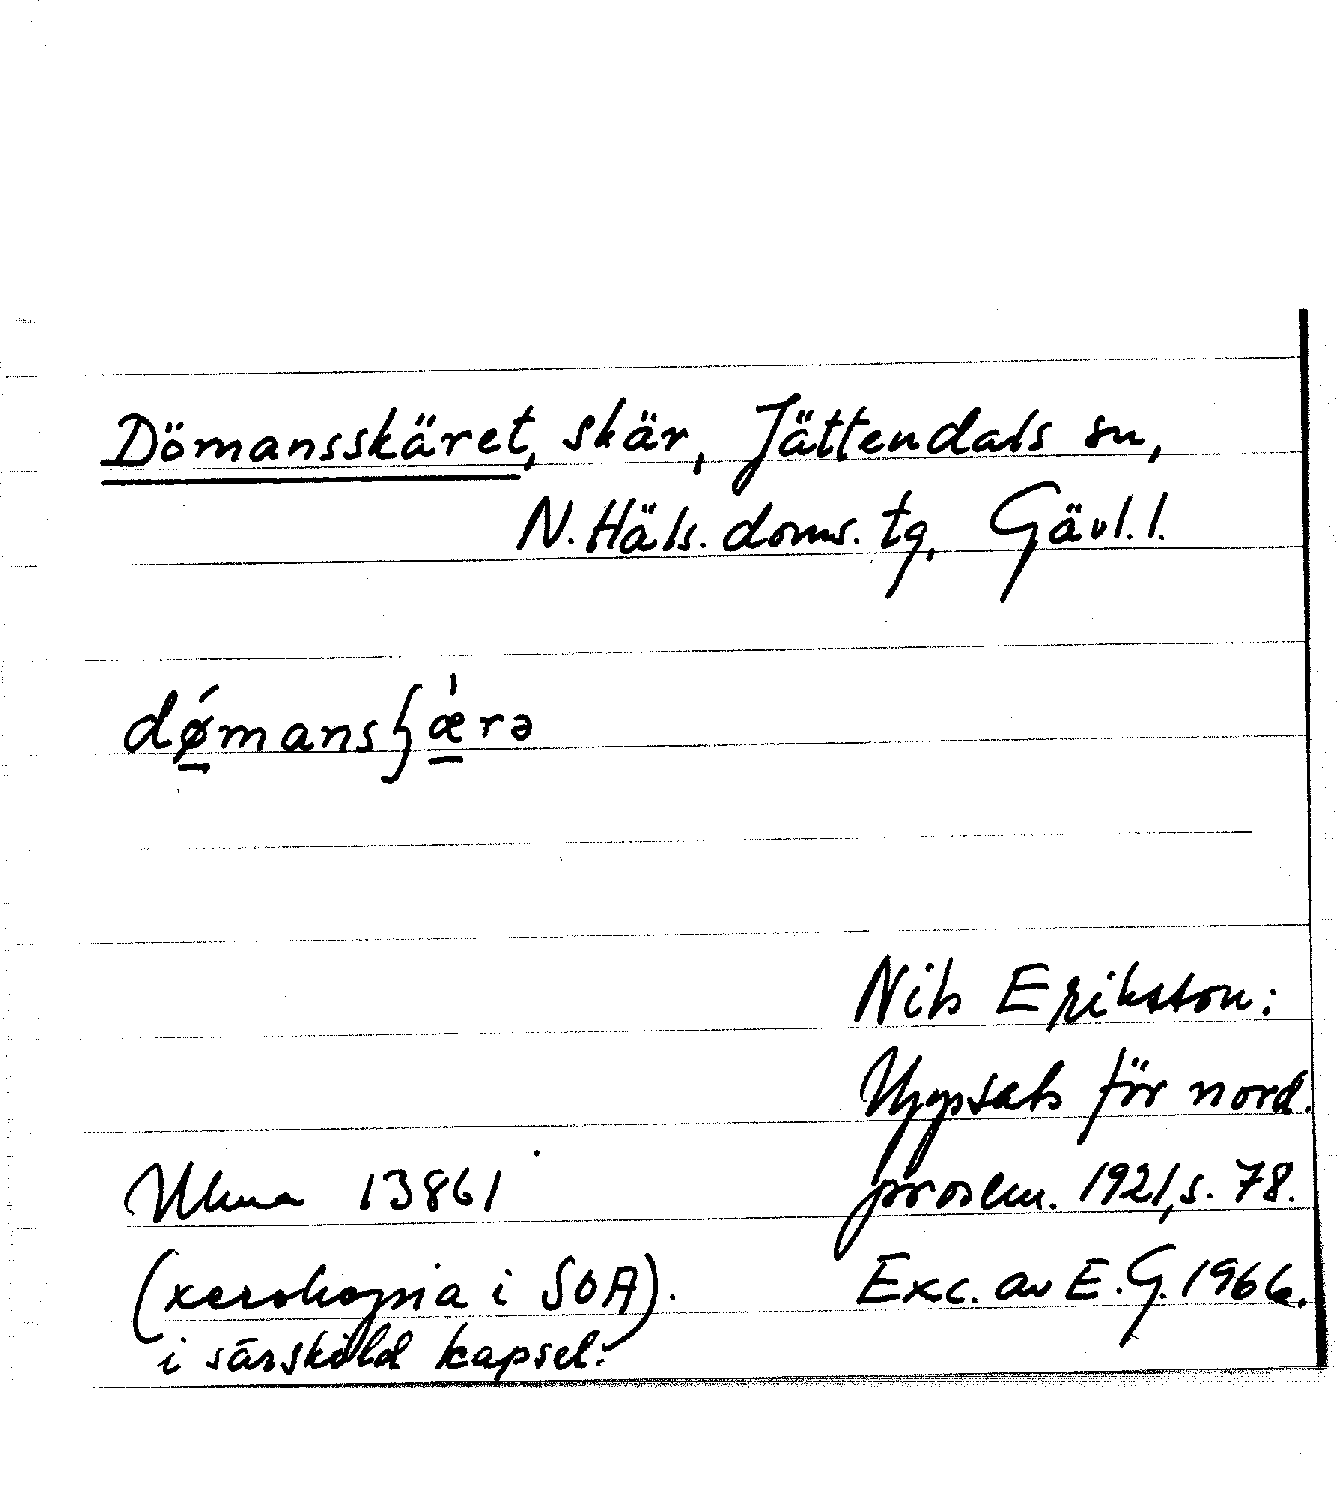 Dömansskäret, skär, Jättendals sn,
N. Häls. doms. tg, Gävl. l.
dǿmansʃæ̀rə
Nils Eriksson:
Uppsats för nord.
prosem. 1921, s. 78.
Ulma 13861
(xerokopia i SOA).
i särskild kapsel.
Exc. av E. G. 1966.